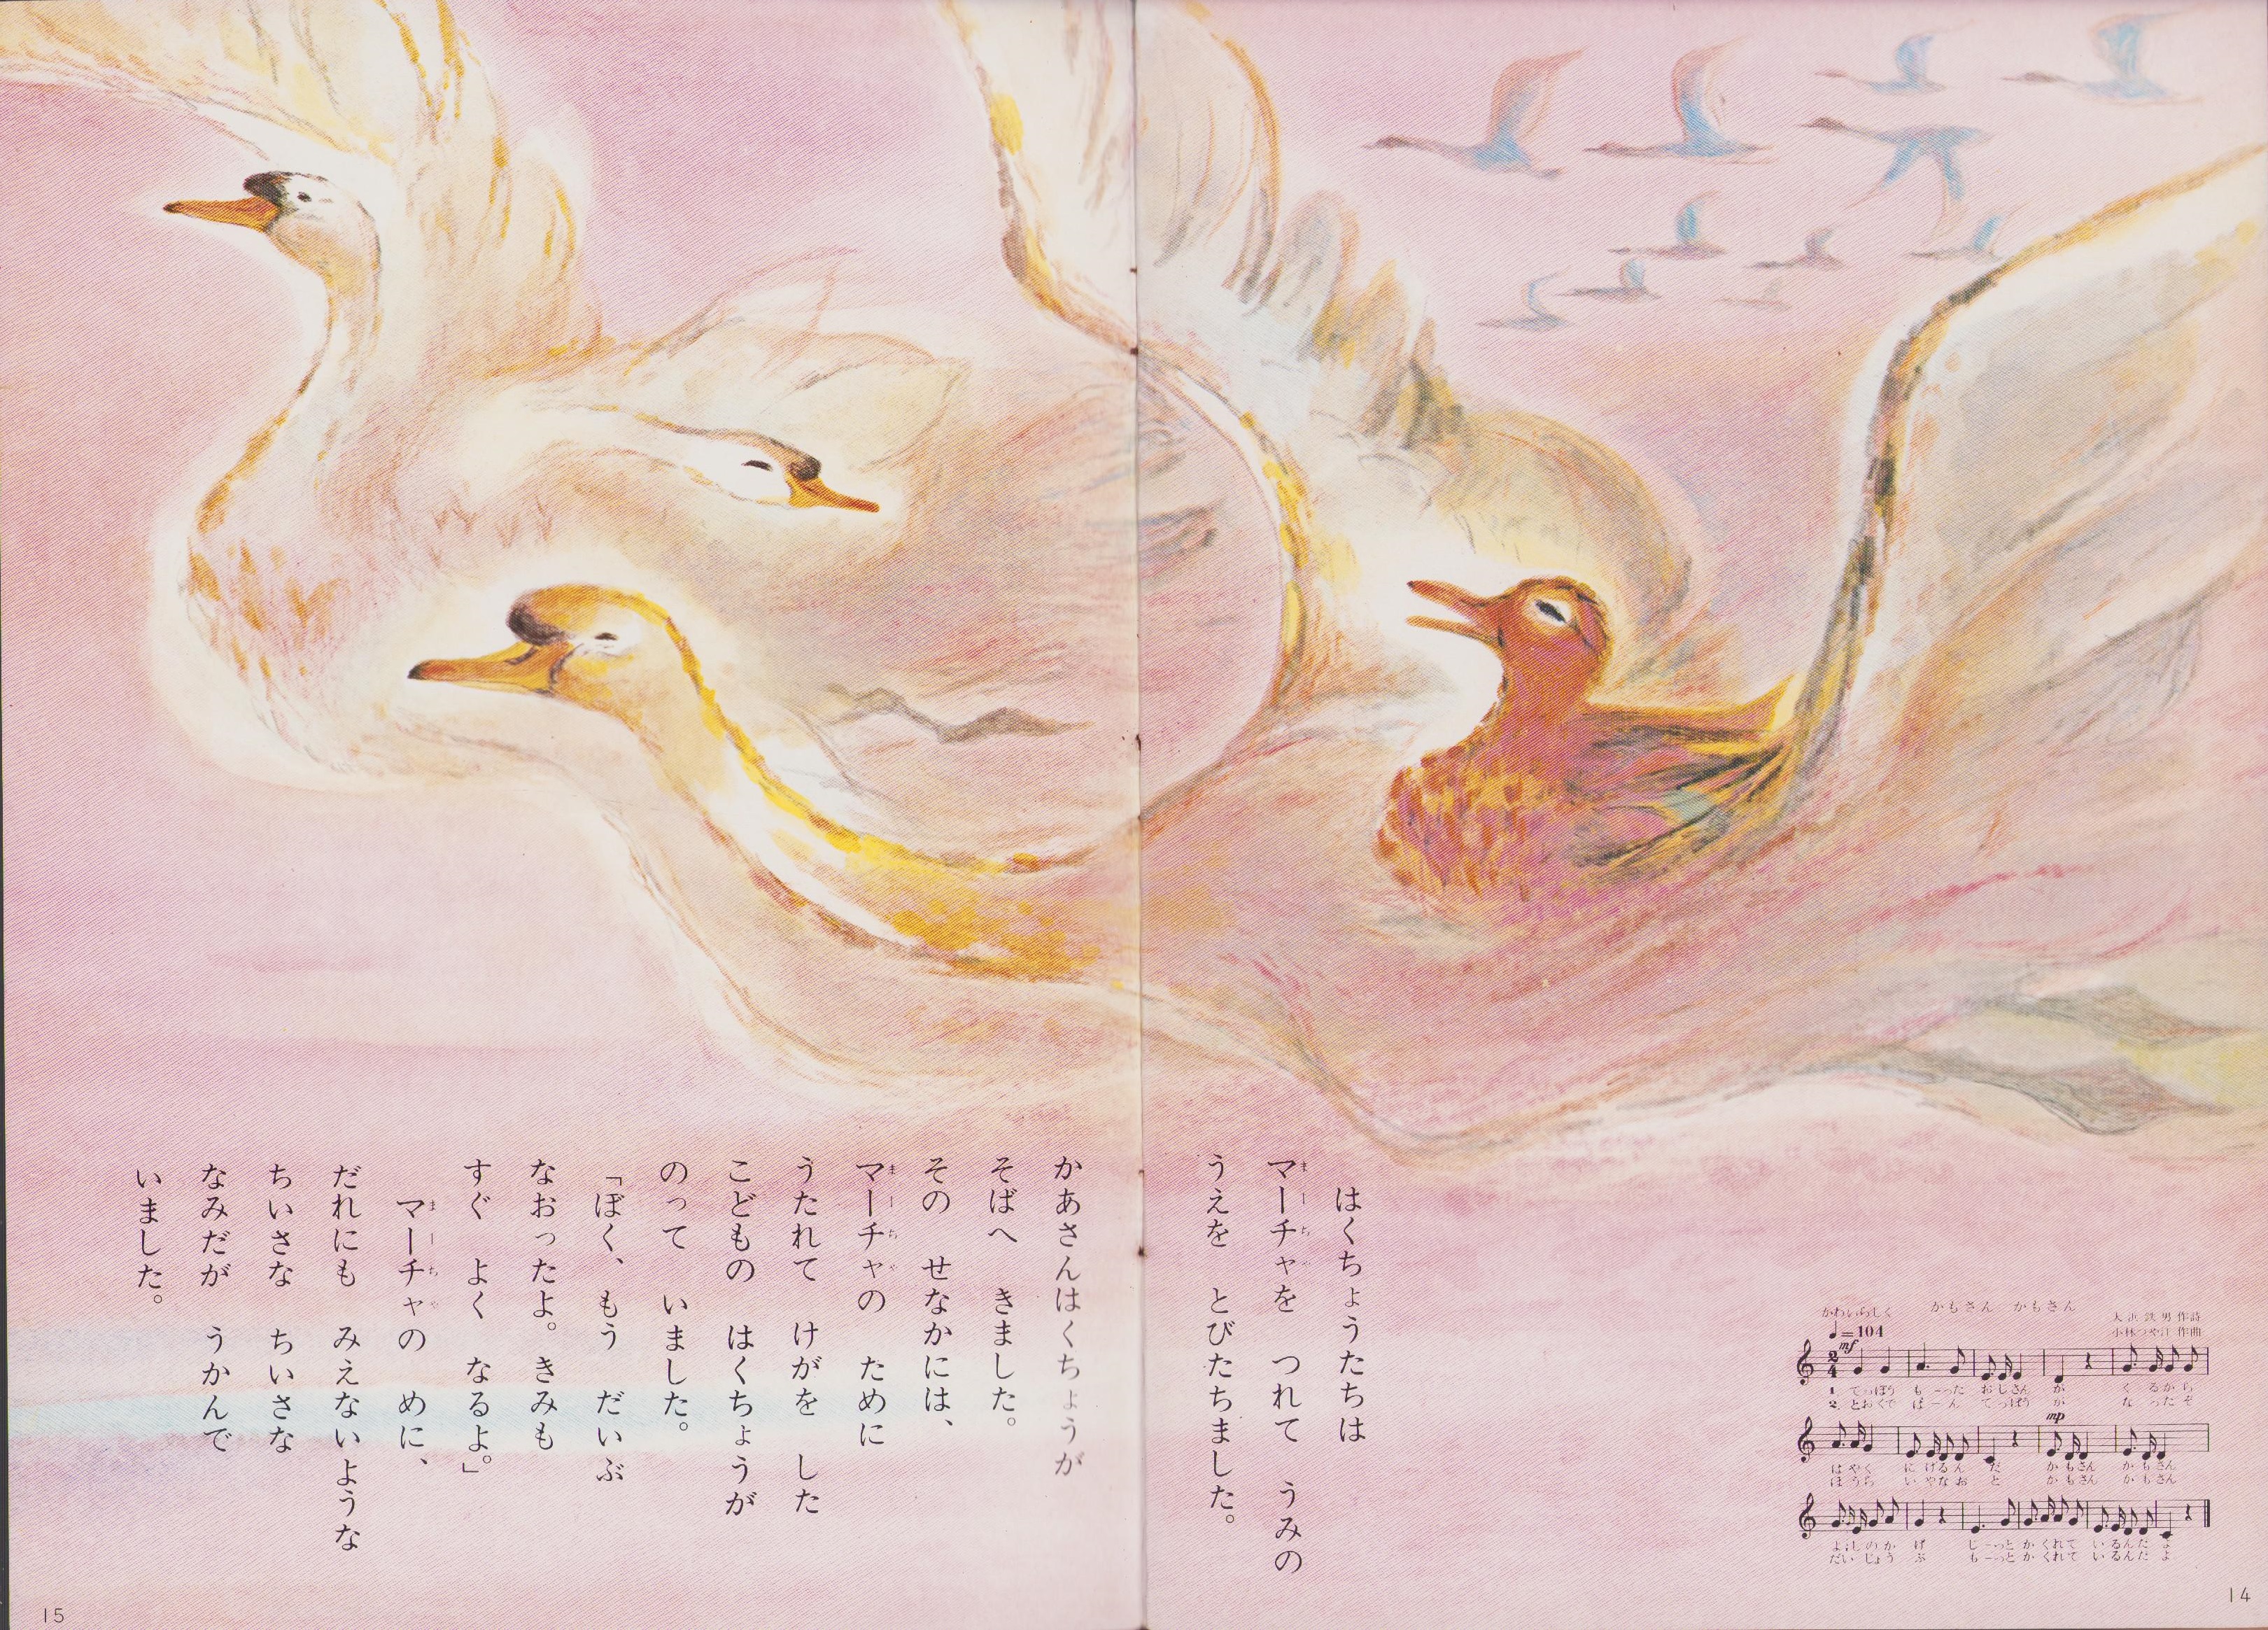 はくちょうたちは
マーチャを つれて うみの
うえを とびたちました。
かもさん かもさん
かわいらしく
大浜鉄男 作詩
小林つや江 作曲
♩=104
mf
1. てっぽう もーった おじさん が く るから
2. とおくで ばーん てっぽう が な ったぞ
mp
はやく に げるん だ かもさん かもさん
ほうら い やなお と かもさん かもさん
よしのか げ じーっと かくれて いるんだ よ
だいじょう ぶ もーっと かくれて いるんだ よ
14
かあさんはくちょうが
そばへ きました。
その せなかには、
マーチャの ために
うたれて けがを した
こどもの はくちょうが
のって いました。
「ぼく、もう だいぶ
なおったよ。きみも
すぐ よく なるよ。」
マーチャの めに、
だれにも みえないような
ちいさな ちいさな
なみだが うかんで
いました。
15